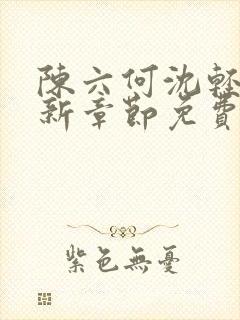 陳六何沈輕
新章節免費
紫色無憂